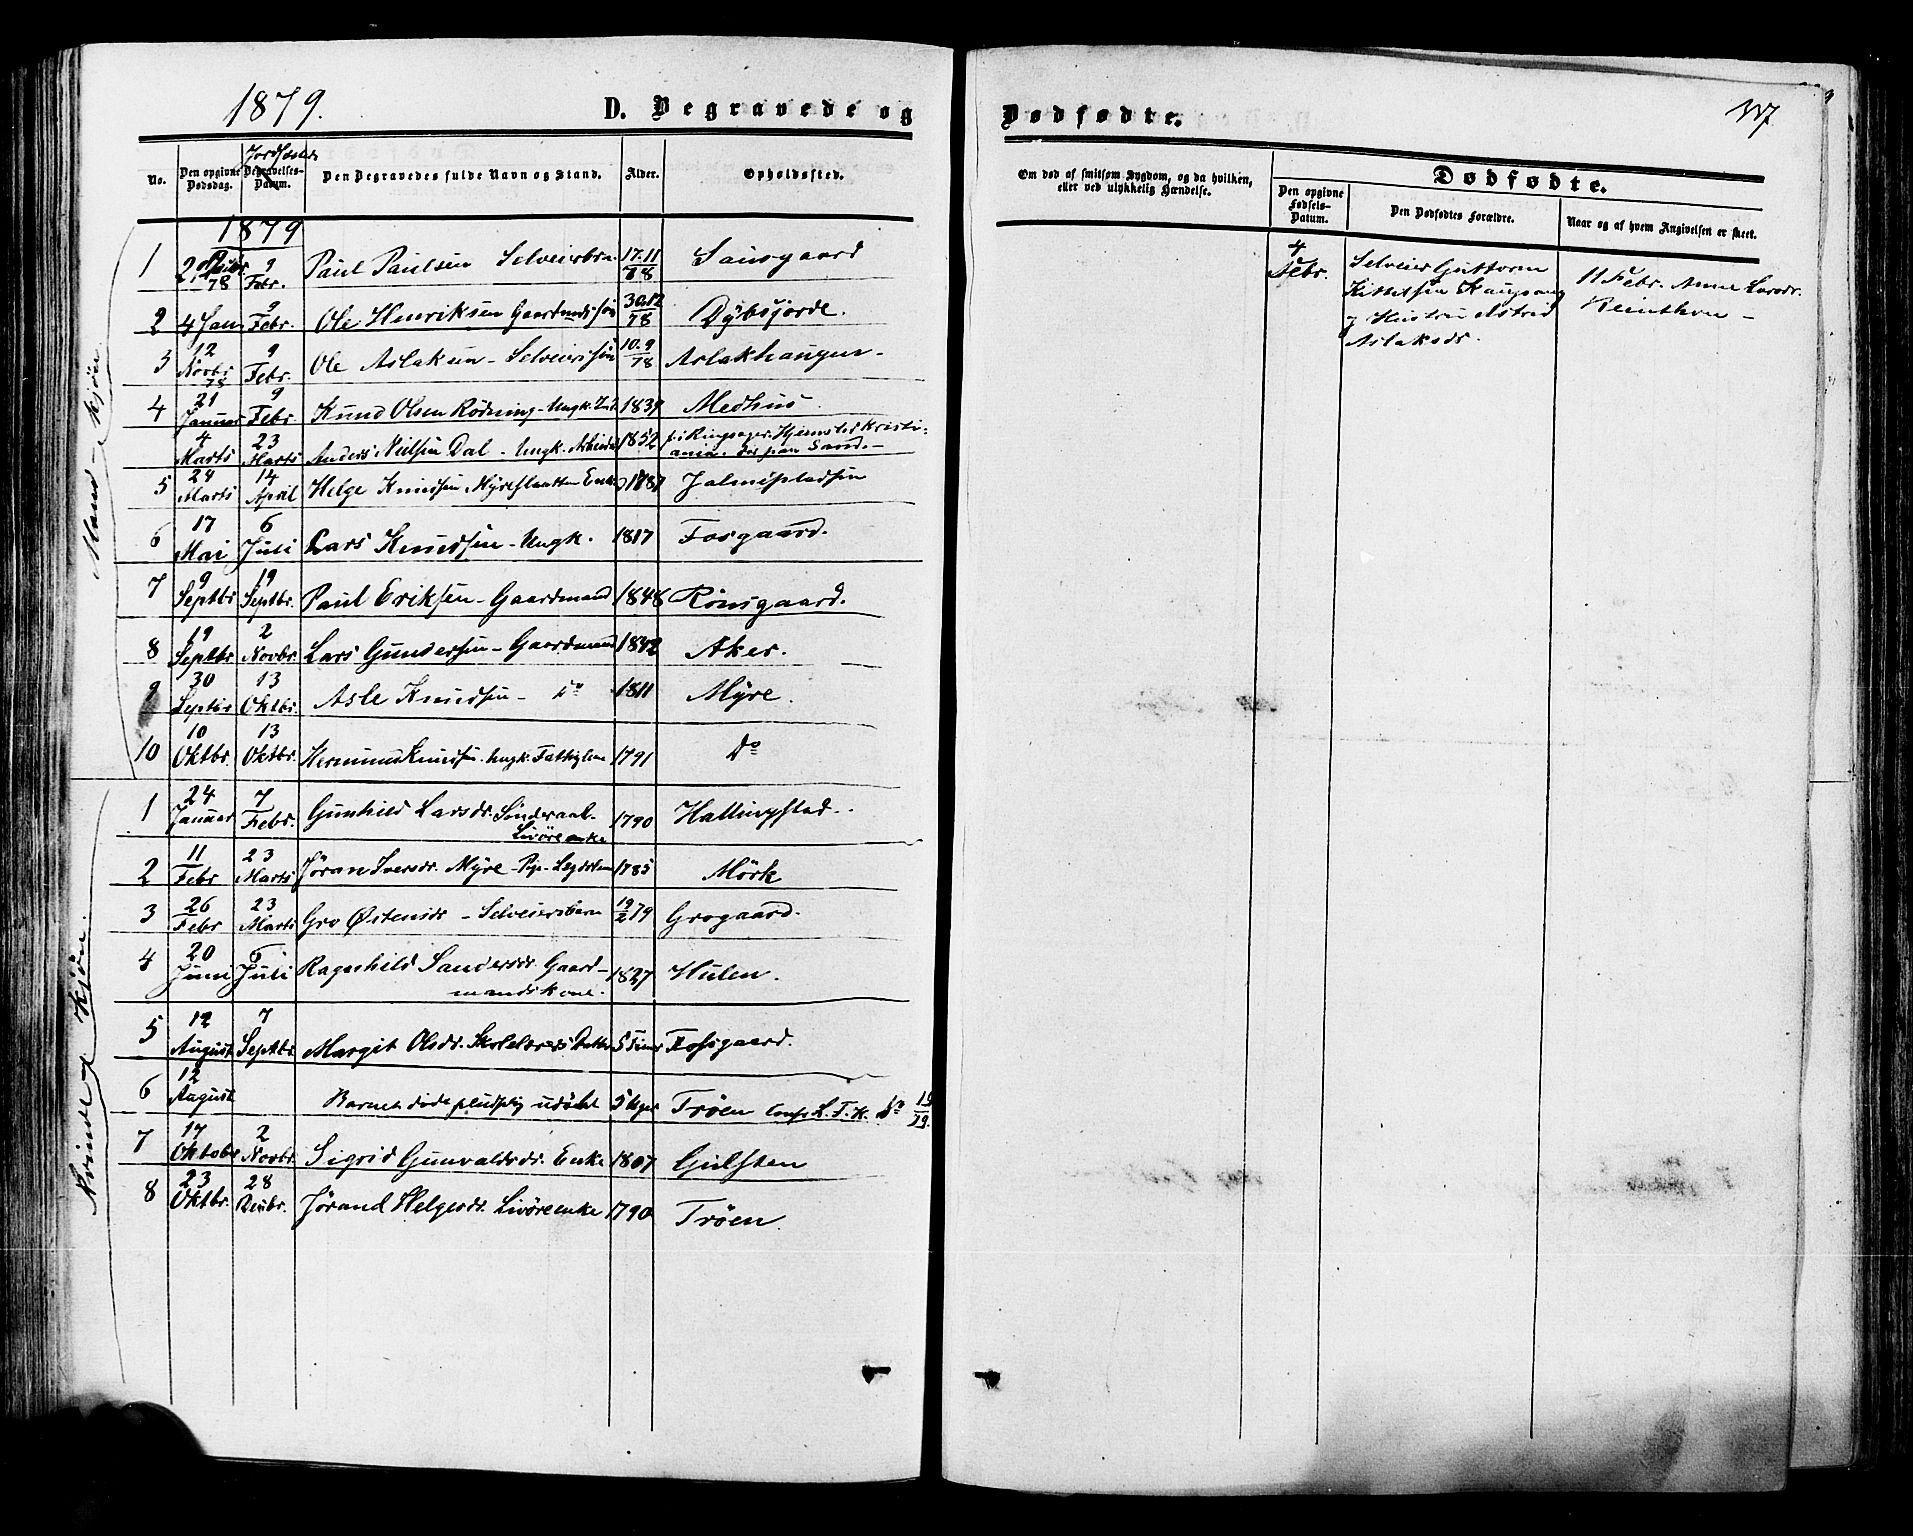 1879.
D. Begravede og
Dødfødte.
No.
Den opgivne Dødsdag.
Jordfæstelse
Begravelses-Datum.
Den Begravedes fulde Navn og Stand.
Alder.
Opholdssted.
Om død af smitsom Sygdom, og da hvilken, eller ved ulykkelig Hændelse.
Dødfødte.
Den opgivne Fødsels-Datum.
Den Dødfødtes Forældre.
Naar og af hvem Angivelsen er skeet.
Mand-kjön.
1879
1 78 9 Febr. Paul Paulsen Selveierbrn 17.11/78 Sausgaard
2 4 Jan 9 Febr. Ole Henriksen Gaardmdssön 30.12/78 Dybsjorde.
3 12 Novbr 78 9 Febr. Ole Aslaksen - Selveierssön 10.9/78 Aslakhaugen -
4 21 Januar 9 Febr. Knud Olsen Rödning - Ungk. 1839 Medhus.
4 Marts 23 Marts Anders Nielsen Dal - Ungk. Arbeider 1852 f. i Ringsager. Hjemsted Kristi-
ania. Sand. -
5 24 Marts 14 April Helge Knudsen Myreslaatten 1787 Jalmspladsen
6 17 Mai 6 Juli Lars Knudsen - Ungk. 1817 Fosgaard.
7 9 Septbr 19 Septbr. Paul Eriksen - Gaardmand 1848 Rönsgaard.
8 19 Septbr 2 Novbr. Lars Gundersen - Gaardmand 1842 Aker.
9 30 Septbr 13 Oktbr. Asle Knudsen - do 1811 Myre.
10 10 Oktbr. 13 Oktbr. Hermund Knudsen. Ungk. Fattiglem 1791 Do
Kvindekjön.
1 24 Januar 7 Febr. Gunhild Larsdr. Sönderaal-
Livöreenke 1790 Hallingstad.
2 11 Febr 23 Marts Jöran Iversdr. Myre - Pige - Legdslem 1785 Mörk
3 26 Febr 23 Marts Gro Østensdr - Selveiersbarn 19/2 79 Grogaard.
4 20 Juni 6 Juli Ragnhild Sandersdr. Gaard-
mandskone. 1827 Hulen.
5 12 August 7 Septbr. Margit Olsdr. Skolelærers Datter 5 Timer Fossgaard.
6 12 August Barnet döde pludselig udöbt 5 Uger Tröen
7 17 Oktobr 2 Novbr. Sigrid Gunvaldsdr. Enke 1807 Gulsten
8 23 Oktbr. 28 Decbr. Jörand Helgesdr. Livöreenke 1790 Tröen.
4 Febr.
Selveier Guttorm
Kittilsen Kaupang
og Hustru Astrid
Aslaksdr.
11 Febr. Anne Larsdr.